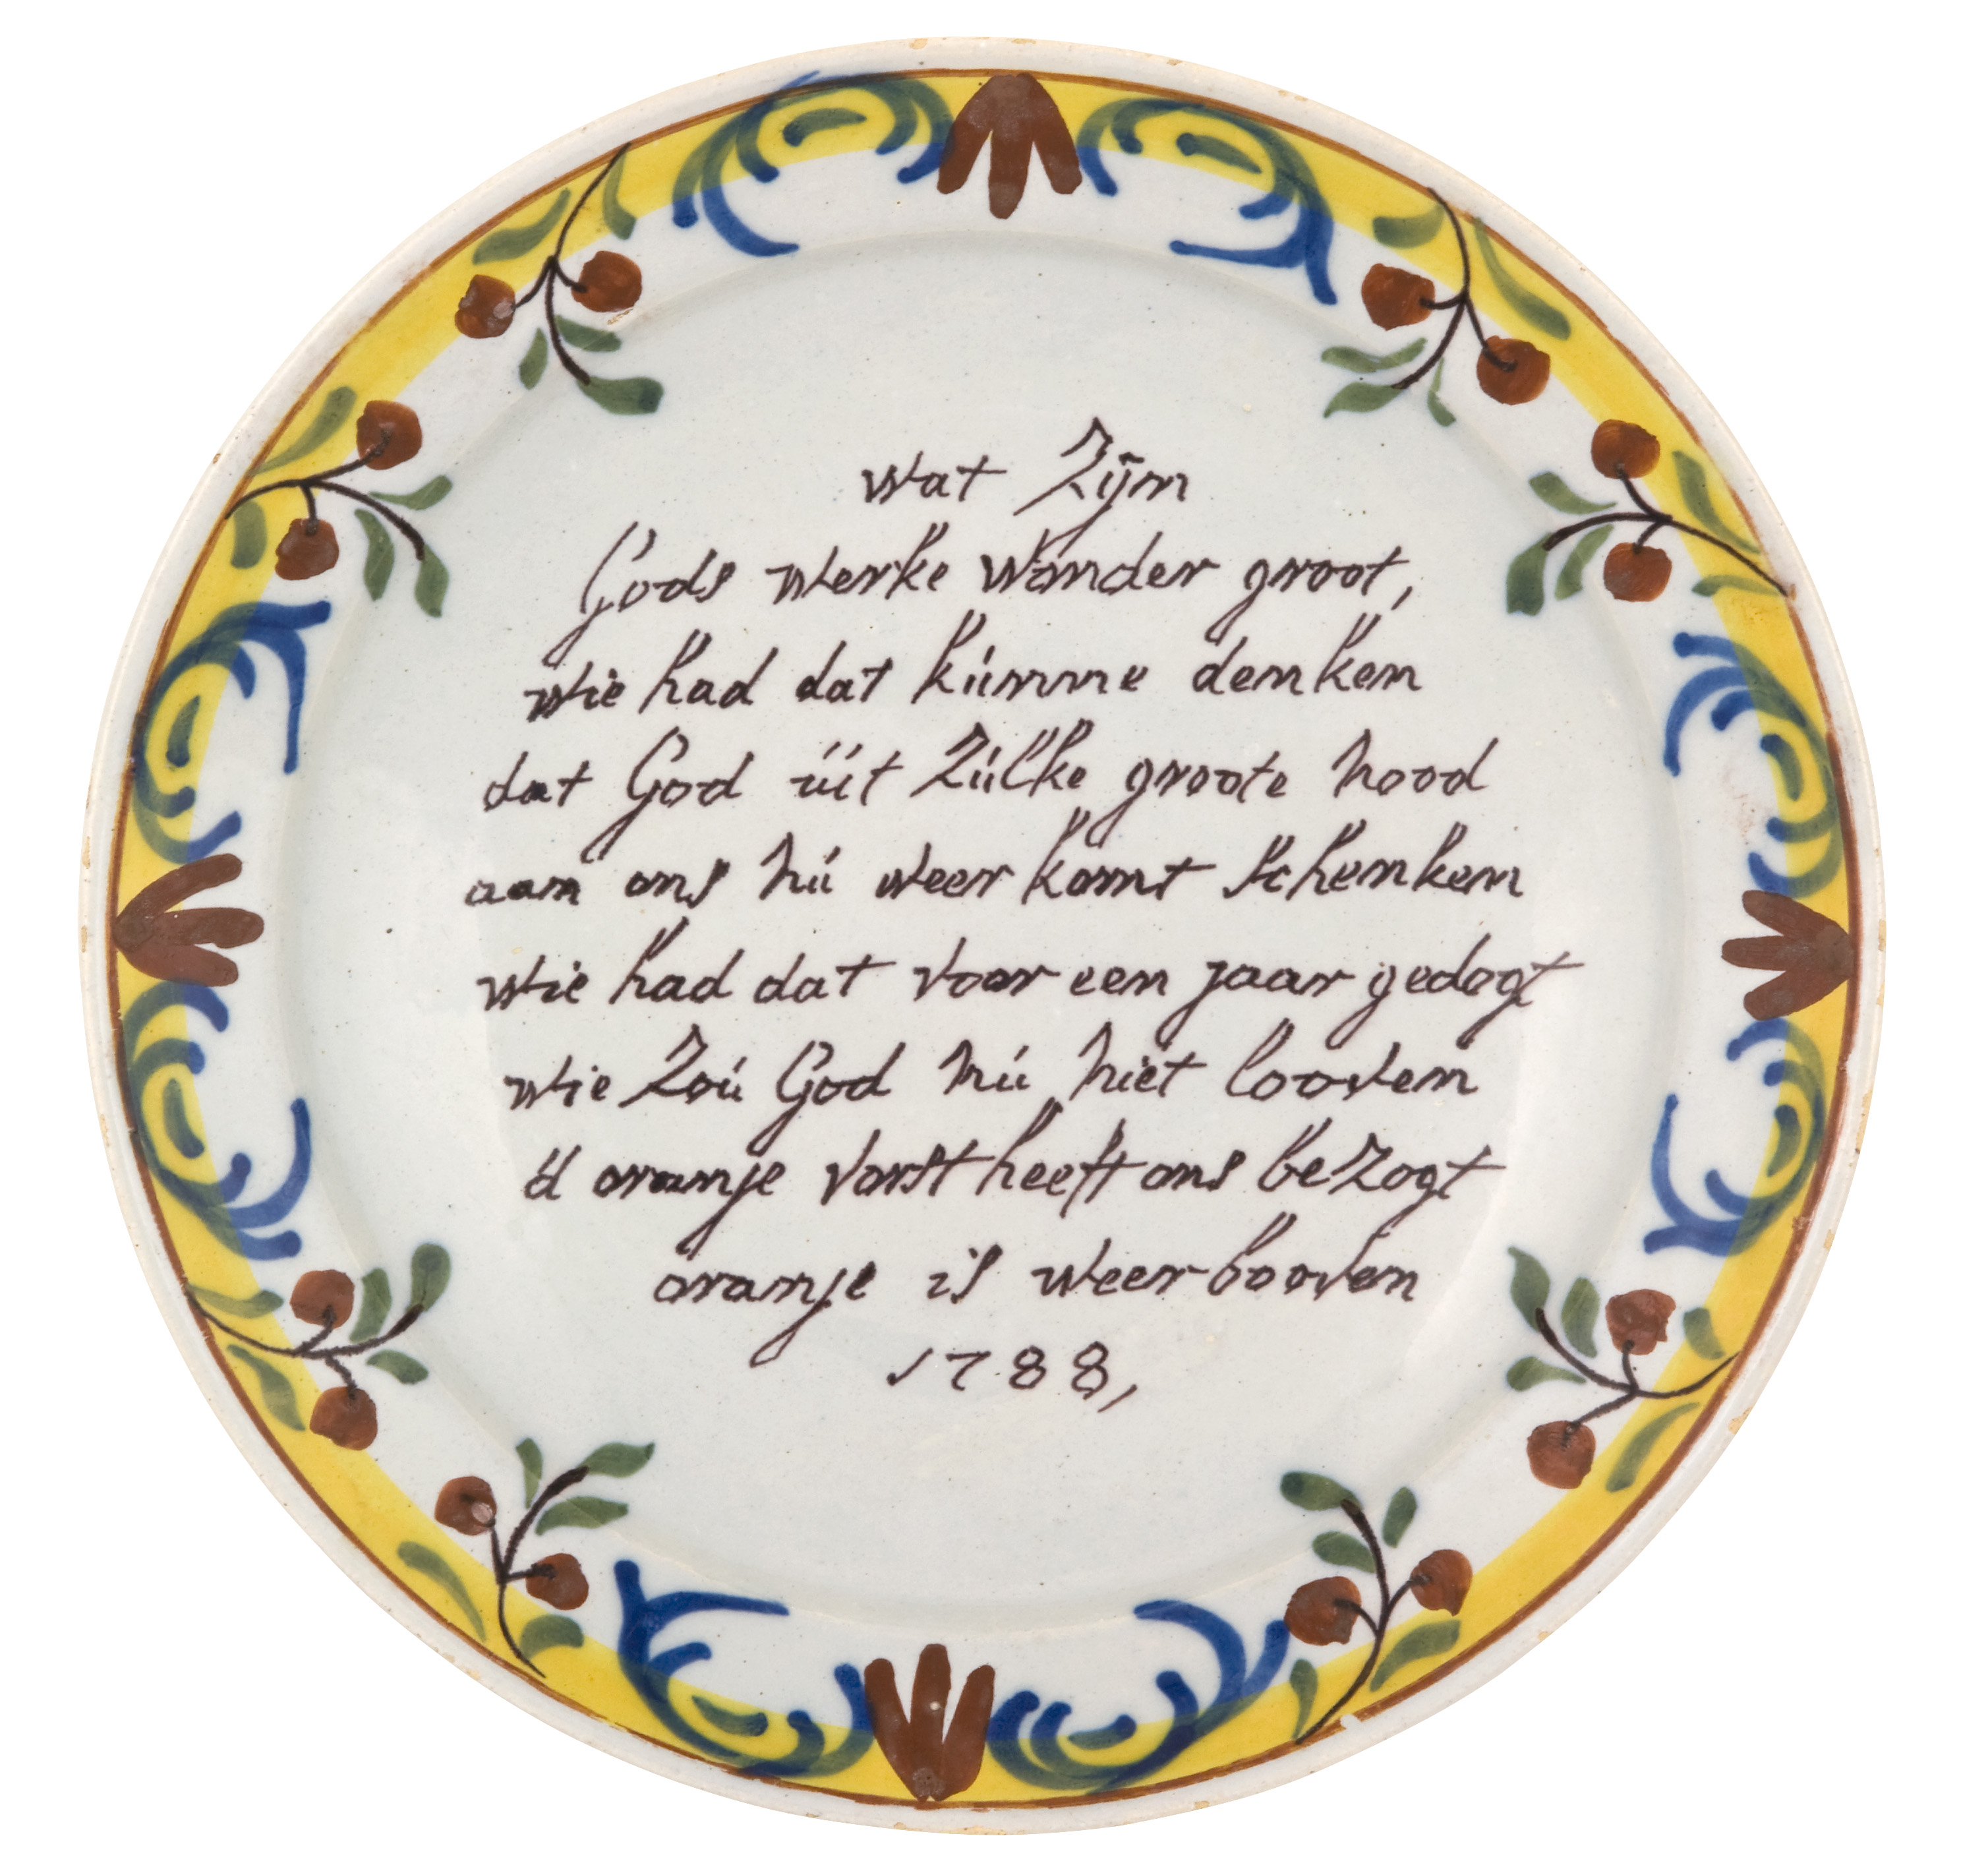 wat Zijn
Gods werke wonder groot,
wie had dat kúnne denken
dat God úit Zúlke groote nood
aan ons nú weer komt schenken
wie had dat voor een jaar gedogt
wie Zoú God nú niet looven
d oranje vorst heeft ons bezogt
oranje is weer booven
1788,